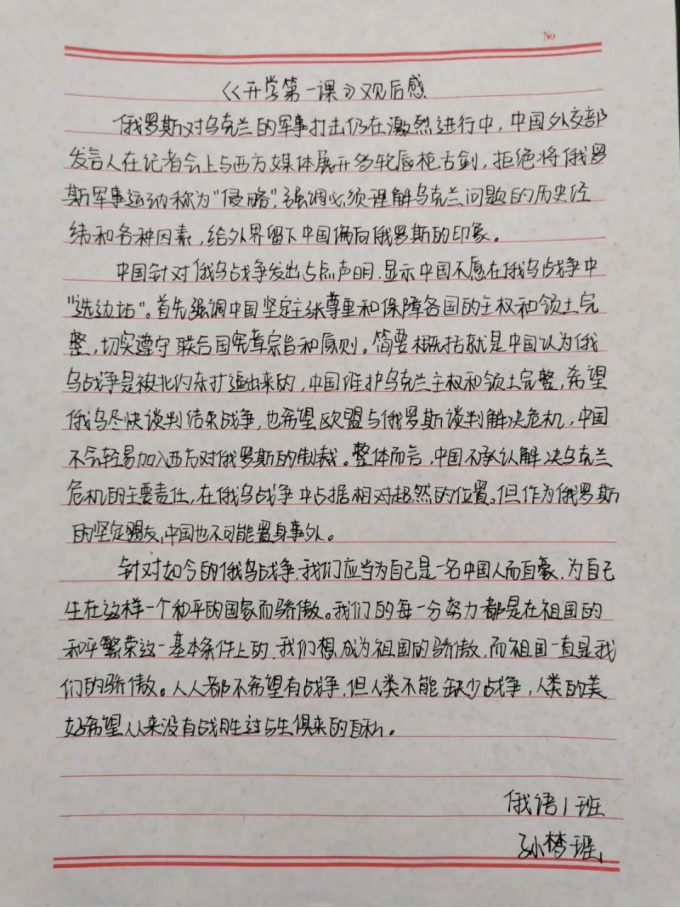 No
《开学第一课》观后感
俄罗斯对乌克兰的军事打击仍在激烈进行中，中国外交部
发言人在记者会上与西方媒体展开多轮唇枪舌剑，拒绝将俄罗
斯军事运动称为“侵略”，强调必须理解乌克兰问题的历史经
纬和各种因素，给外界留下中国偏向俄罗斯的印象。
中国针对俄乌战争发出5点声明，显示中国不愿在俄乌战争中
“选边站”。首先强调中国坚定主张尊重和保障各国的主权和领土完
整，切实遵守联合国宪章宗旨和原则。简要概括就是中国认为俄
乌战争是被北约东扩逼出来的，中国维护乌克兰主权和领土完整，希望
俄乌尽快谈判结束战争，也希望欧盟与俄罗斯谈判解决危机，中国
不会轻易加入西方对俄罗斯的制裁。整体而言，中国不承认解决乌克兰
危机的主要责任，在俄乌战争中占据相对超然的位置。但作为俄罗斯
的坚定盟友，中国也不可能置身事外。
针对如今的俄乌战争，我们应当为自己是一名中国人而自豪，为自己
生在这样一个和平的国家而骄傲。我们的每一分努力都是在祖国的
和平繁荣这一基本条件上的，我们想成为祖国的骄傲，而祖国一直是我
们的骄傲。人人都不希望有战争，但人类不能缺少战争，人类的美
好希望从来没有战胜过与生俱来的自私。
俄语1班
孙梦瑶